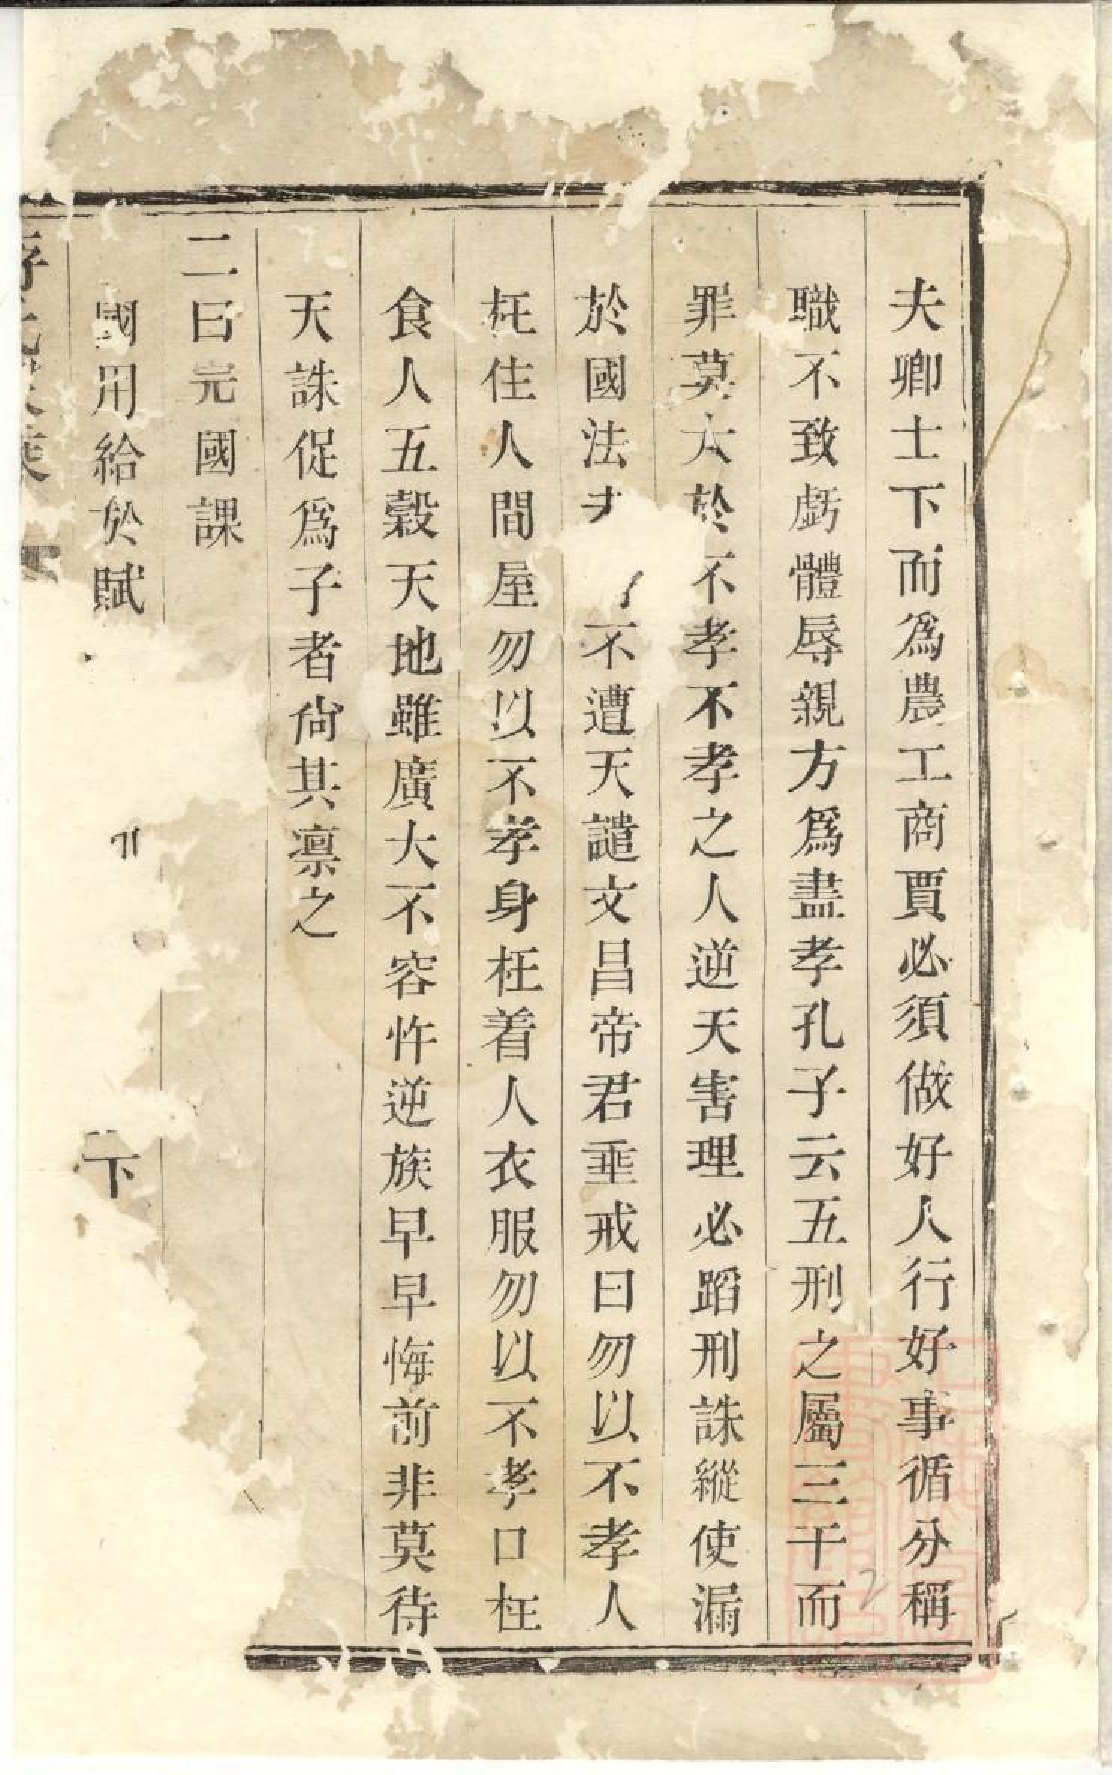 夫卿士下而為農工商賈必須做好人行好事循分稱
職不致虧體辱親方為盡孝孔子云五刑之屬三千而
罪莫大於不孝不孝之人逆天害理必蹈刑誅縱使漏
於國法不遭天譴文昌帝君垂戒曰勿以不孝人
枉住人間屋勿以不孝身枉着人衣服勿以不孝口枉
食人五穀天地雖廣大不容忤逆族早早悔前非莫待
天誅促為子者尙其凛之
二曰完國課
國用給於賦
下